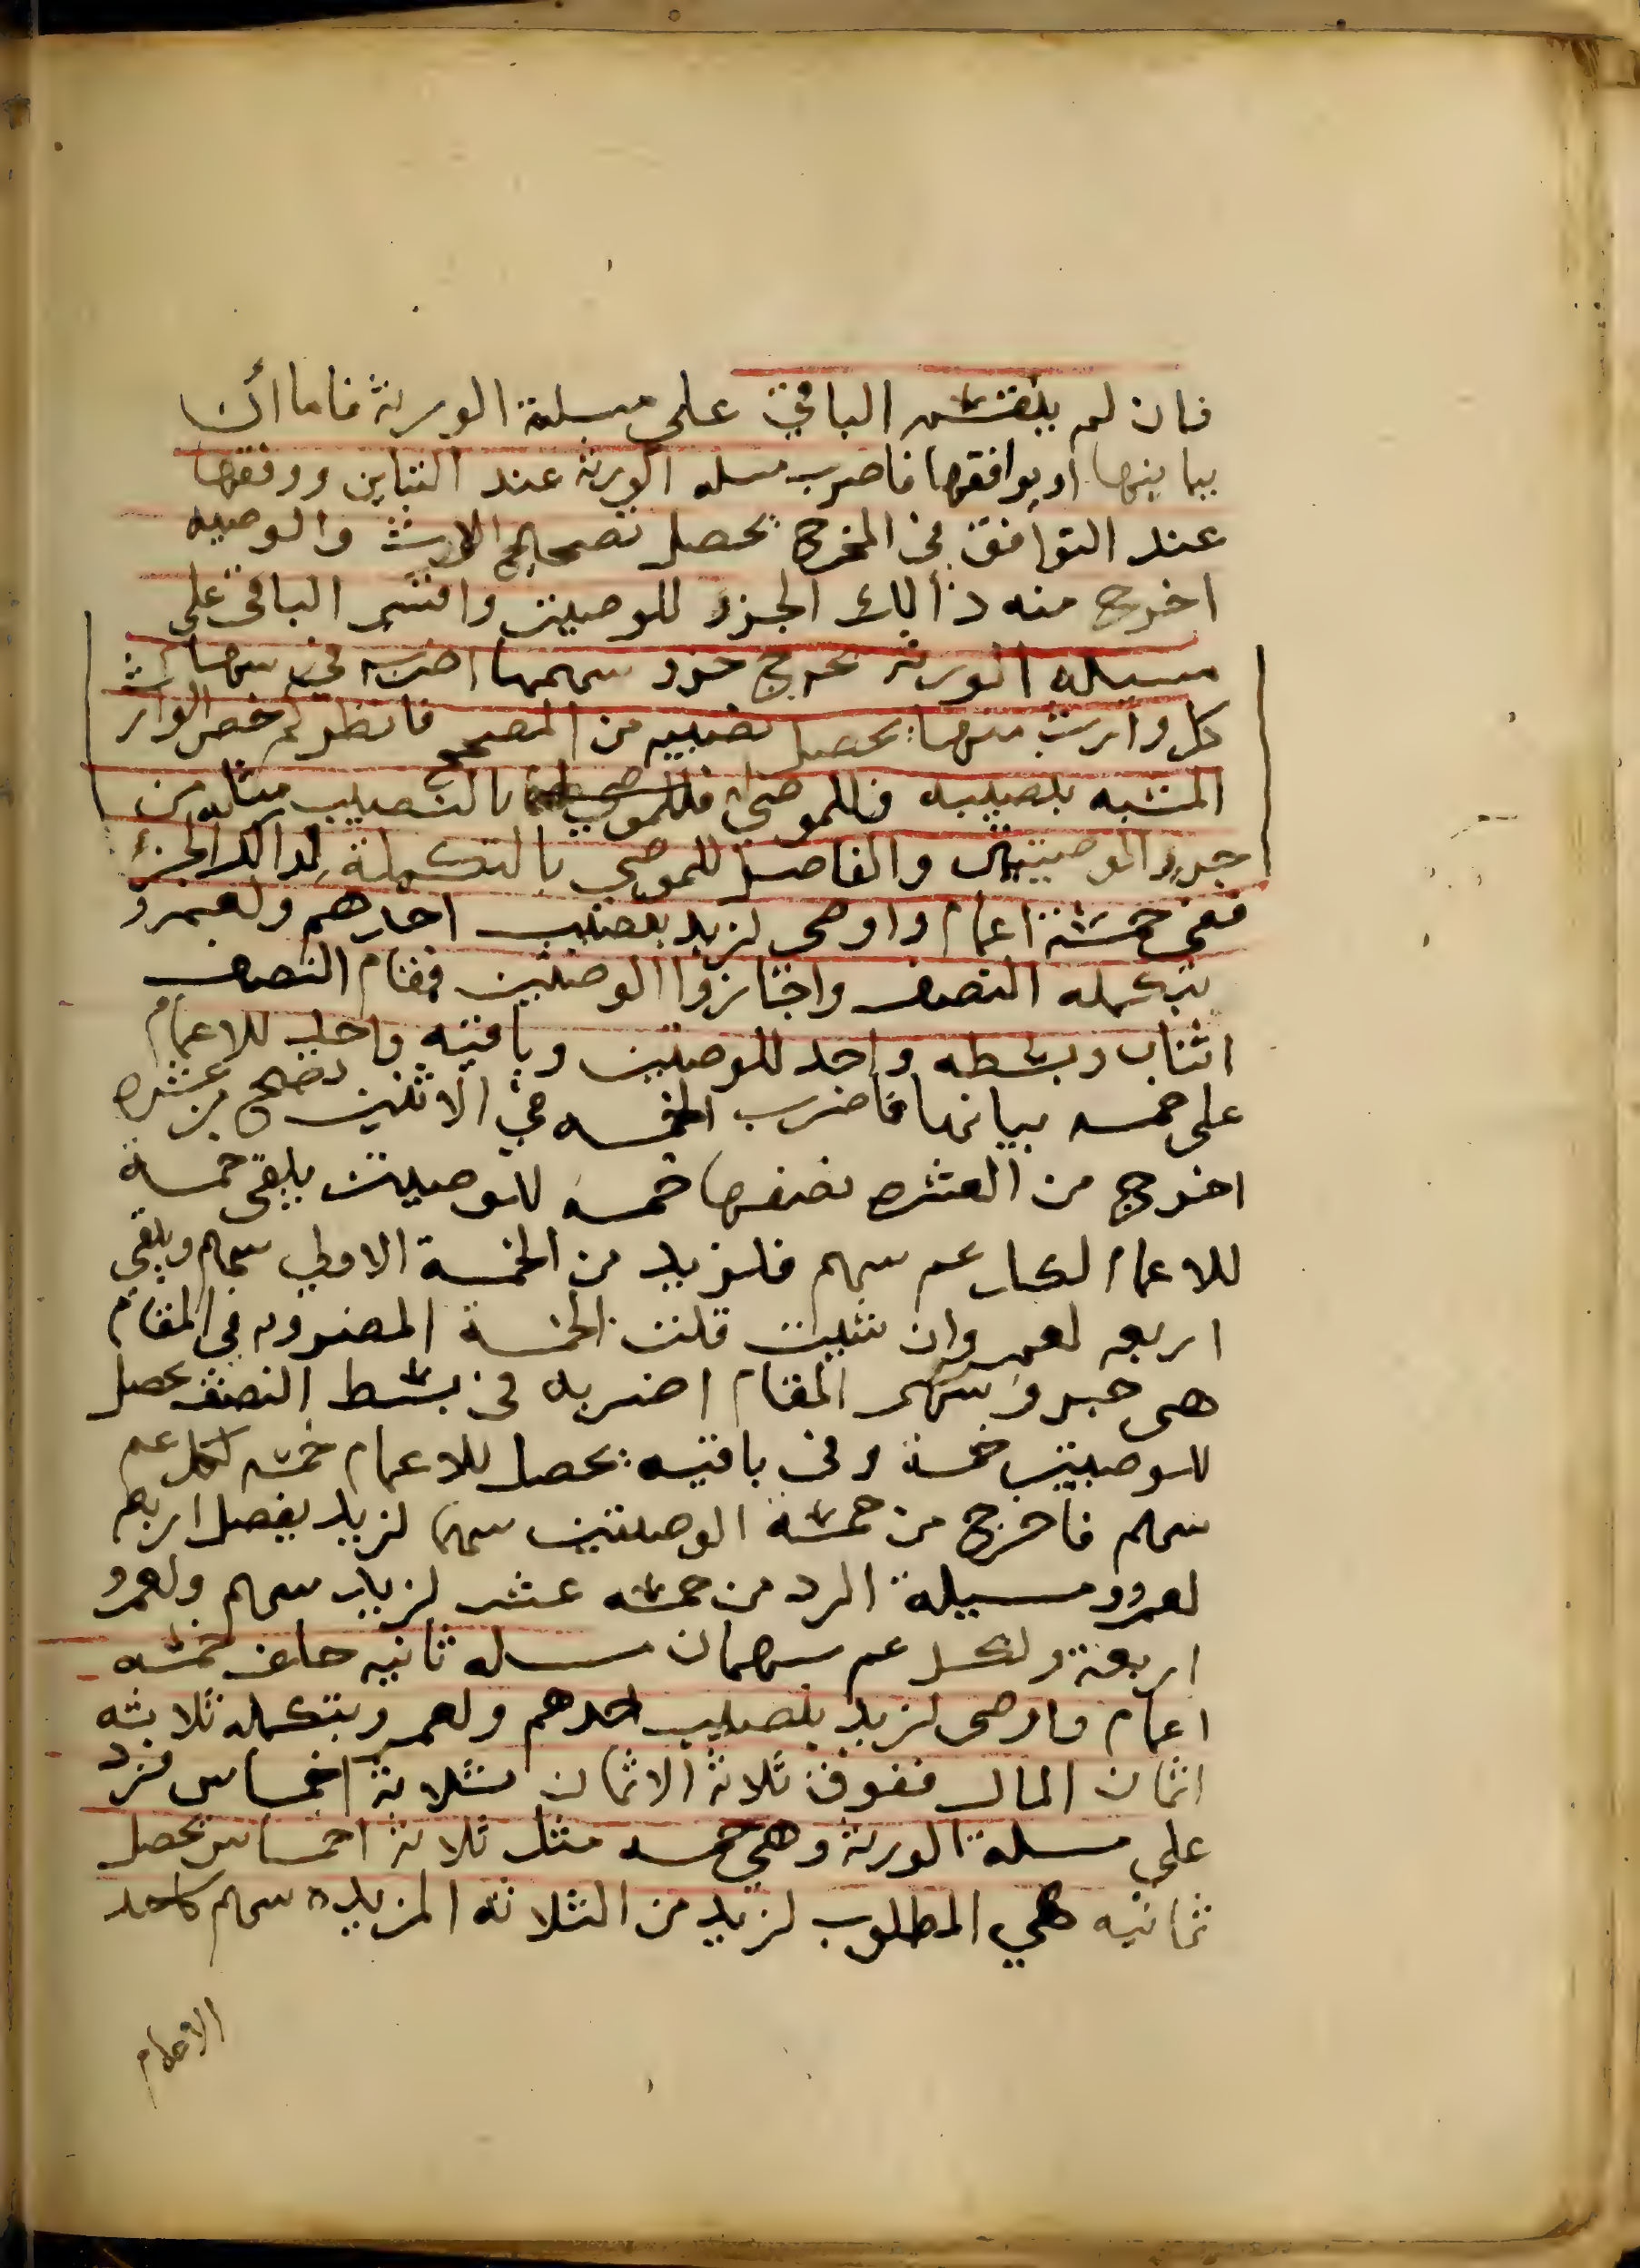 فان لم ينقسم الباقي على مسلة الورثة فاما أن
يباينها او يوافقها فاضرب مسله الورثه عند التباين ووفقها
عند التوافق في المخرج يحصل تصحيح الارث والوصيه
اخرج منه ذالك الجزء للوصيتين واقسم الباقي على
مسيله الورثه يخرج جزء سهمها اضربه في سهام
كل وارث منها يحصل نصيبه من المصحح فانظر كم خص الوارث
المشبه بنصيبه فللموصى بالنصيب مثله من
جزء الوصيتين والفاضل للموصي بالتكملة لذالك الجزء
ففي خمسة اعمام واوصى لزيد بنصيب احدهم ولعمرو
بتكمله النصف واجازوا الوصيتين فمقام النصف
اثنان وبسطه واحد للوصيتين وباقيه واحد للاعمام
على خمسه يباينها فاضرب الخمسه في الاثنين تصح من عشره
اخرج من العشره نصفها خمسه للوصيتين يبقى خمسة
للاعمام لكل عم سهم فلزيد من الخمسة الاولي سهم ويبقي
اربعه لعمرو وان شيت قلت الخمسة المضروبه في المقام
هي جزو سهم المقام اضربه في بسط النصف يحصل
للوصيتين خمسة وفي باقيه يحصل للاعمام خمسه لكل عم
سهم فاخرج من خمسة الوصيتين سهما لزيد يفضل اربعه
لعمرو ومسيلة الرد من خمسه عشر لزيد سهم ولعمرو
اربعة ولكل عم سهمان مسله ثانيه خلف خمسه
اعمام واوصى لزيد بنصيب احدهم ولعمرو بتكمله ثلاثه
اثمان المال ففوق ثلاثة الاثمان ثلاثة اخماس فزد
على مسلة الورثة وهي خمسه مثل ثلاثة اخماس يحصل
ثمانيه هي المطلوب لزيد من الثلاثه المزيده سهم كاحد
الاعمام